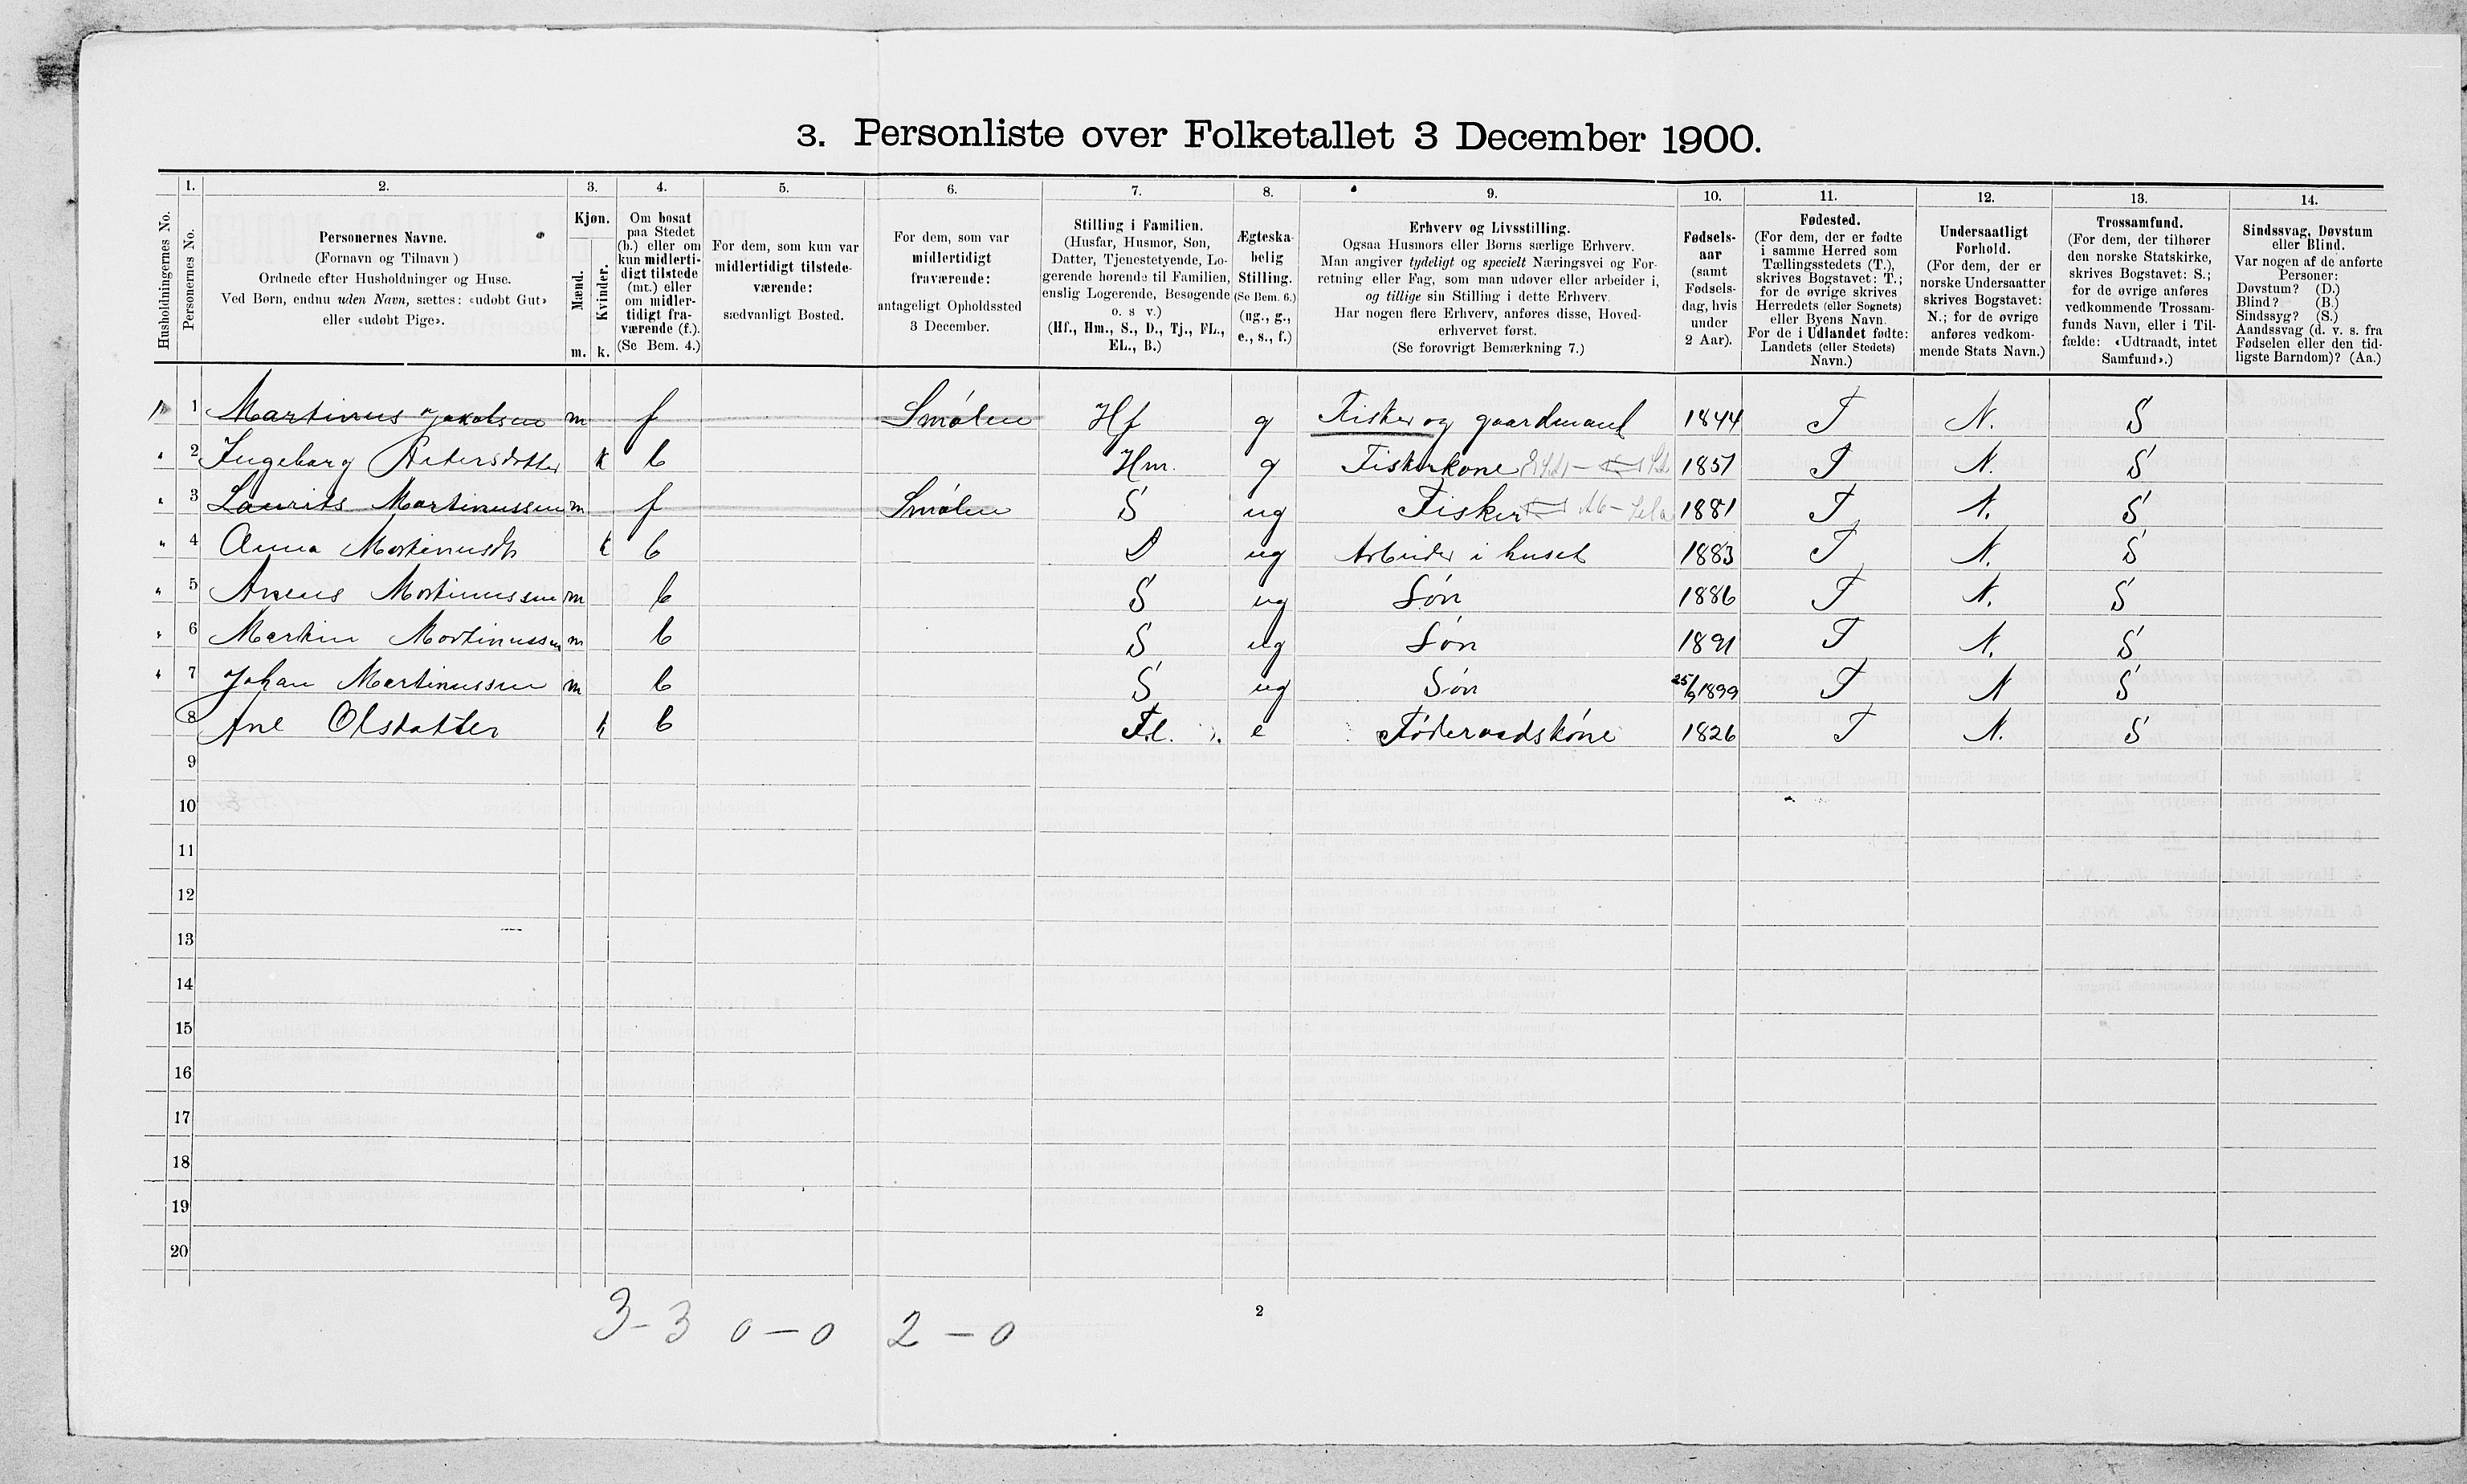 3. Personliste over Folketallet 3 December 1900.
Husholdningernes No.
1.
Personernes No.
2.
Personernes Navne.
(Fornavn og Tilnavn)
Ordnede efter Husholdninger og Huse.
Ved Børn, endnu uden Navn, sættes: «udøbt Gut»
eller «udøbt Pige».
3.
Kjøn.
Mænd.
Kvinder.
m. k.
4.
Om bosat
paa Stedet
(b.) eller om
kun midlerti-
digt tilstede
(mt.) eller
om midler-
tidigt fra-
værende (f.).
(Se Bem. 4.)
5.
For dem, som kun var
midlertidigt tilstede-
værende:
sædvanligt Bosted.
6.
For dem, som var
midlertidigt
fraværende:
antageligt Opholdssted
3 December.
7.
Stilling i Familien.
(Husfar, Husmor, Søn,
Datter, Tjenestetyende, Lo-
gerende hørende til Familien,
enslig Logerende, Besøgende
o. s v.)
(Hf., Hm., S., D., Tj., FL.,
EL., B.)
8.
Ægteska-
belig
Stilling.
(Se Bem. 6.)
(ug., g.,
e., s., f.)
9.
Erhverv og Livsstilling.
Ogsaa Husmors eller Børns særlige Erhverv.
Man angiver tydeligt og specielt Næringsvei og For-
retning eller Fag, som man udøver eller arbeider i,
og tillige sin Stilling i dette Erhverv.
Har nogen flere Erhverv, anføres disse, Hoved-
erhvervet først.
(Se forøvrigt Bemærkning 7.)
10.
Fødsels-
aar
(samt
Fødsels-
dag, hvis
under
2 Aar).
11.
Fødested.
(For dem, der er fødte
i samme Herred som
Tællingsstedets (T.),
skrives Bogstavet: T.;
for de øvrige skrives
Herredets (eller Sognets)
eller Byens Navn.
For de i Udlandet fødte:
Landets (eller Stedets)
Navn.)
12.
Undersaatligt
Forhold.
(For dem, der er
norske Undersaatter
skrives Bogstavet:
N.; for de øvrige
anføres vedkom-
mende Stats Navn.)
13.
Trossamfund.
(For dem, der tilhører
den norske Statskirke,
skrives Bogstavet: S.;
for de øvrige anføres
vedkommende Trossam-
funds Navn, eller i Til-
fælde: «Udtraadt, intet
Samfund».)
14.
Sindssvag, Døvstum
eller Blind.
Var nogen af de anførte
Personer:
Døvstum? (D.)
Blind? (B.)
Sindssyg? (S.)
Aandssvag (d. v. s. fra
Fødselen eller den tid-
ligste Barndom)? (Aa.)
1 Martinus Jakobsen m f Smølen Hf g Fisker og gaardmand 1844 T N. S
2 Ingeborg Petersdatter k b Hm. g Fiskerkone 1857 T N. S
3 Laurits Martinussen m f Smølen S ug Fisker 1881 T N. S
4 Anna Martinusdtr k b D ug Arbeider i huset 1883 T N. S
5 Martinussen m b S ug Søn 1886 T N. S
6 Martin Martinussen m b S ug Søn 1891 T N. S
7 Johan Martinussen m b S ug Søn 25/9 1899 T N S
8 Ane Olsdatter k b Fl. e Føderaadskone 1826 T N. S
9
10
11
12
13
14
15
16
17
18
19
20
3-3 0-0 2-0
2